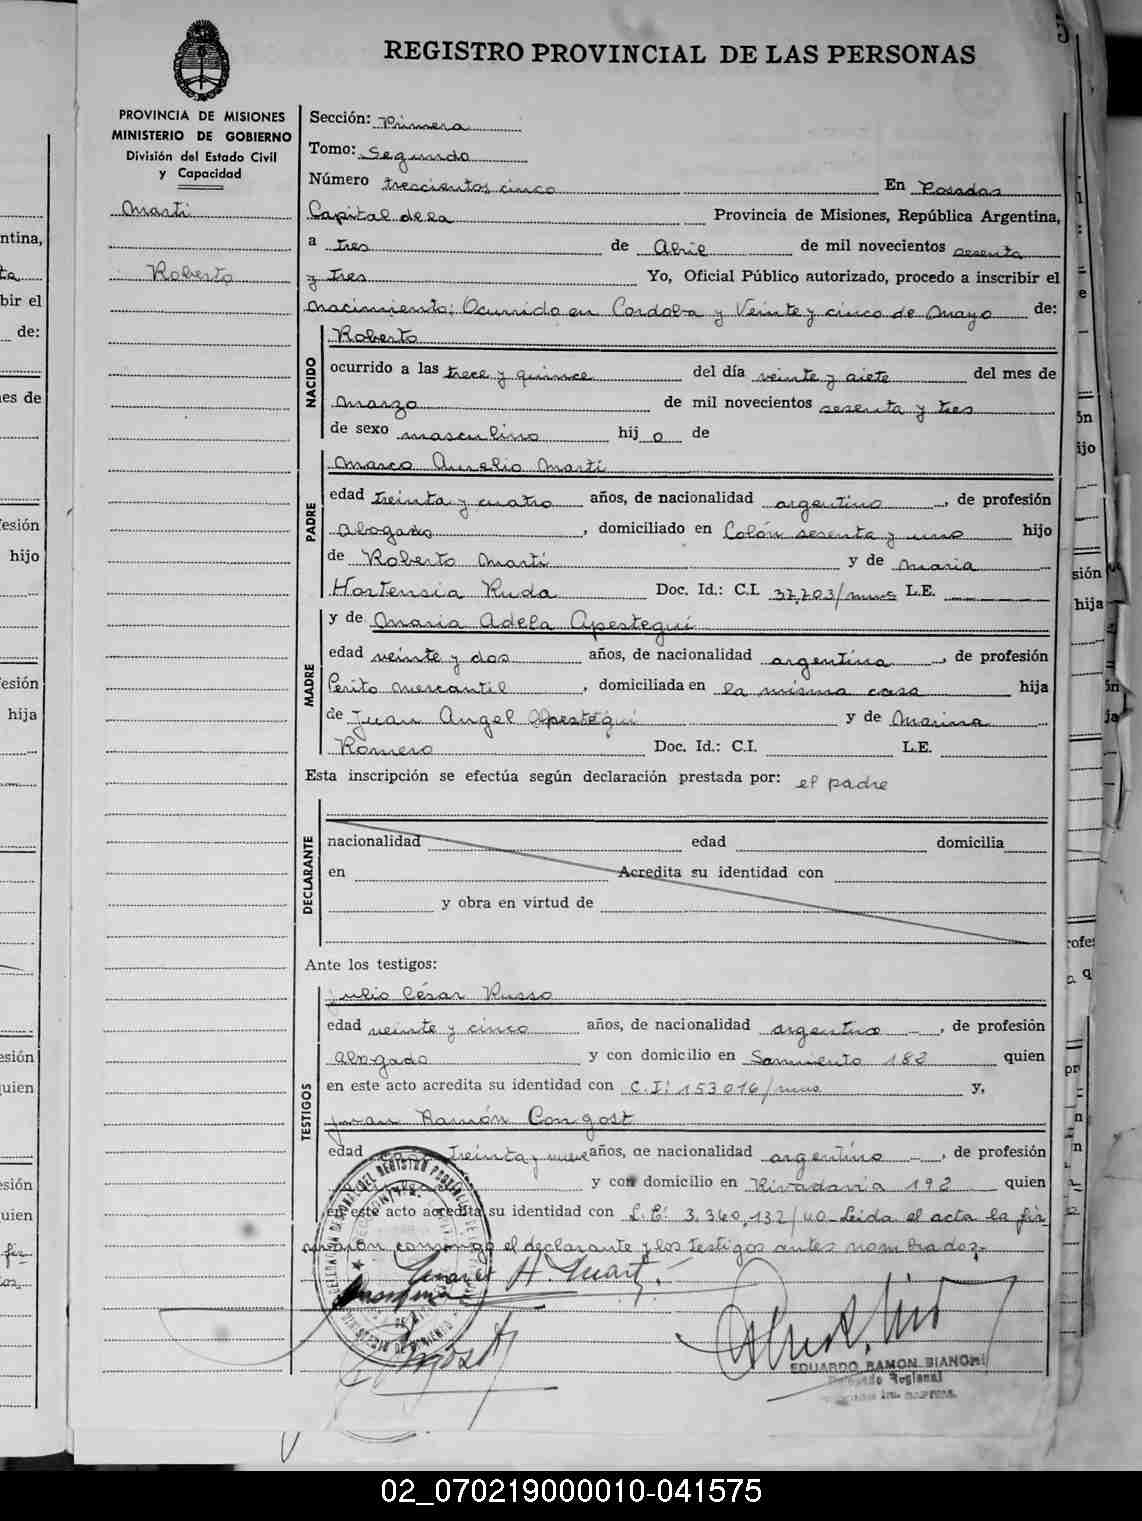 REGISTRO PROVINCIAL DE LAS PERSONAS
PROVINCIA DE MISIONES
MINISTERIO DE GOBIERNO
División del Estado Civil
y Capacidad
Marti
Roberto
Sección: Primera
Tomo: Segundo
Número trescientos cinco En Posadas
Capital de la Provincia de Misiones, República Argentina,
a tres de Abril de mil novecientos sesenta
y tres Yo, Oficial Público autorizado, procedo a inscribir el
nacimiento; Ocurrido en Cordoba y Veinte y cinco de Mayo de:
NACIDO
Roberto
ocurrido a las trece y quince del día veinte y siete del mes de
Marzo de mil novecientos sesenta y tres
de sexo masculino hijo de
PADRE
Marco Aurelio Marti
edad treinta y cuatro años, de nacionalidad argentino, de profesión
Abogado, domiciliado en Colón sesenta y uno hijo
de Roberto Marti y de Maria
Hortensia Ruda Doc. Id.: C.I. 37.703/mnes L.E.
MADRE
y de Maria Adela Apestegui
edad veinte y dos años, de nacionalidad argentina, de profesión
Perito Mercantil, domiciliada en la misma casa hija
de Juan Angel Apestegui y de Marina
Romero Doc. Id.: C.I. L.E.
Esta inscripción se efectúa según declaración prestada por: el padre
DECLARANTE
nacionalidad edad domicilia
en Acredita su identidad con
y obra en virtud de
Ante los testigos:
TESTIGOS
Julio César Russo
edad veinte y cinco años, de nacionalidad argentino, de profesión
Abogado y con domicilio en Sarmiento 182 quien
en este acto acredita su identidad con C.I: 153016/mns y,
Juan Ramón Congost
edad treinta y nueve años, de nacionalidad argentino, de profesión
y con domicilio en Rivadavia 192 quien
en este acto acredita su identidad con L.E: 3.360,132/40 Leida el acta la fir-
maron conmigo el declarante y los testigos antes nombrados.-
EDUARDO RAMON BIANCHI
Delegado Regional
02_070219000010-041575